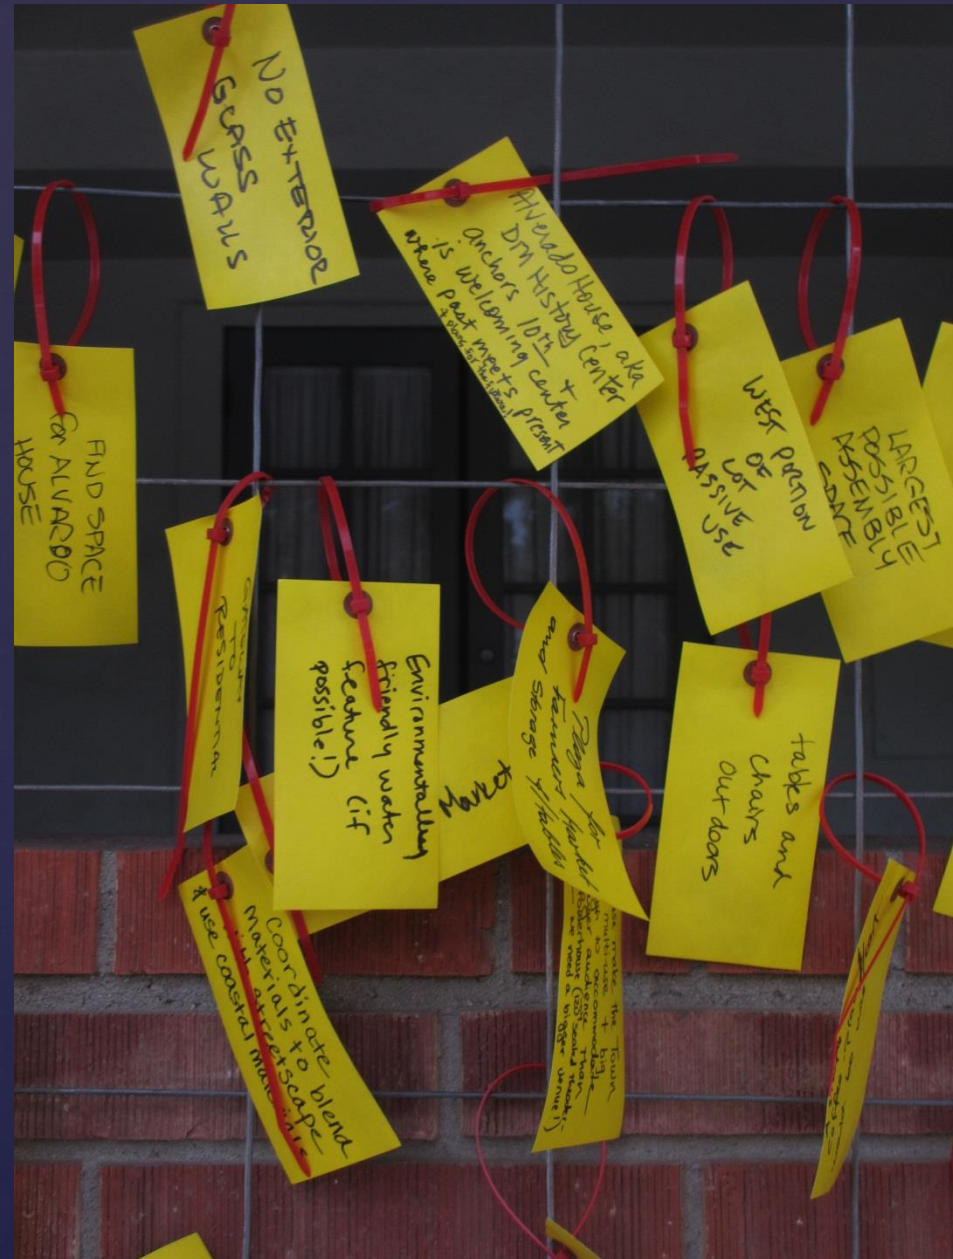 NO EXTERIOR
GLASS
WALLS
Alverado House, aka
DM History Center
anchors 10th +
is welcoming center
where past meets present
WEST PORTION
OF
LOT
PASSIVE
USE
LARGEST
POSSIBLE
ASSEMBLY
SPACE
FIND SPACE
for ALVARDO
HOUSE
TO
RESIDENTIAL
Environmentally
friendly water
feature (if
possible!)
Market
Plaza for
Farmers Market
and storage of tables
tables and
Chairs
outdoors
Coordinate
materials to blend
streetscape
& use coastal
make the Town
multi-use + big
to accommodate
audience than
Powerhouse
we need a bigger venue!)